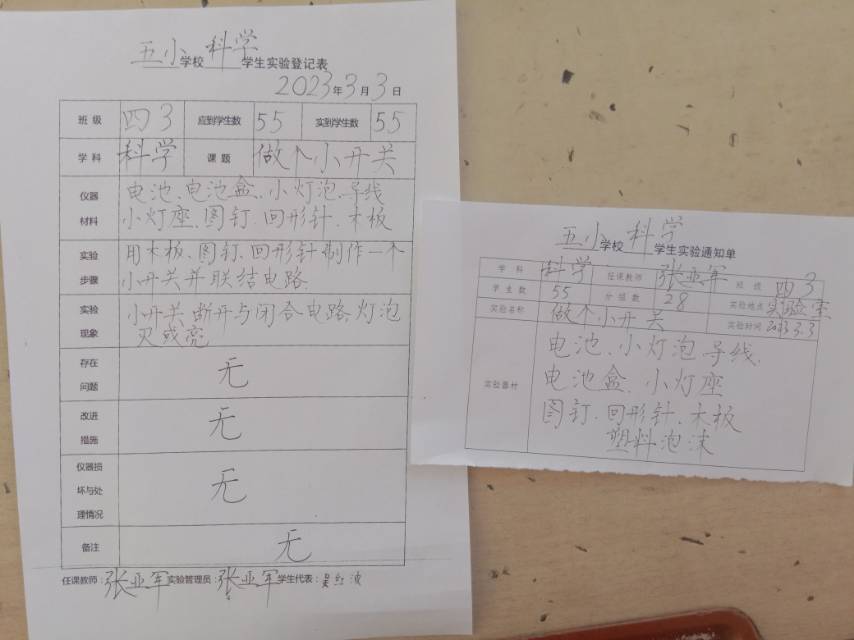 五小学校 科学 学生实验登记表
2023年3月3日
班级 四3 应到学生数 55 实到学生数 55
学科 科学 课题 做个小开关
仪器材料 电池、电池盒、小灯泡、导线
小灯座、图钉、回形针、木板
实验步骤 用木板、图钉、回形针制作一个
小开关并联结电路
实验现象 小开关断开与闭合电路,灯泡
灭或亮
存在问题 无
改进措施 无
仪器损坏与处理情况 无
备注 无
任课教师:张亚军 实验管理员:张亚军 学生代表:吴红波
五小学校 科学 学生实验通知单
学科 科学 任课教师 张亚军 班级 四3
学生数 55 分组数 28 实验地点 实验室
实验名称 做个小开关 实验时间 2023.3.3
实验器材 电池、小灯泡、导线、
电池盒、小灯座
图钉、回形针、木板
塑料泡沫